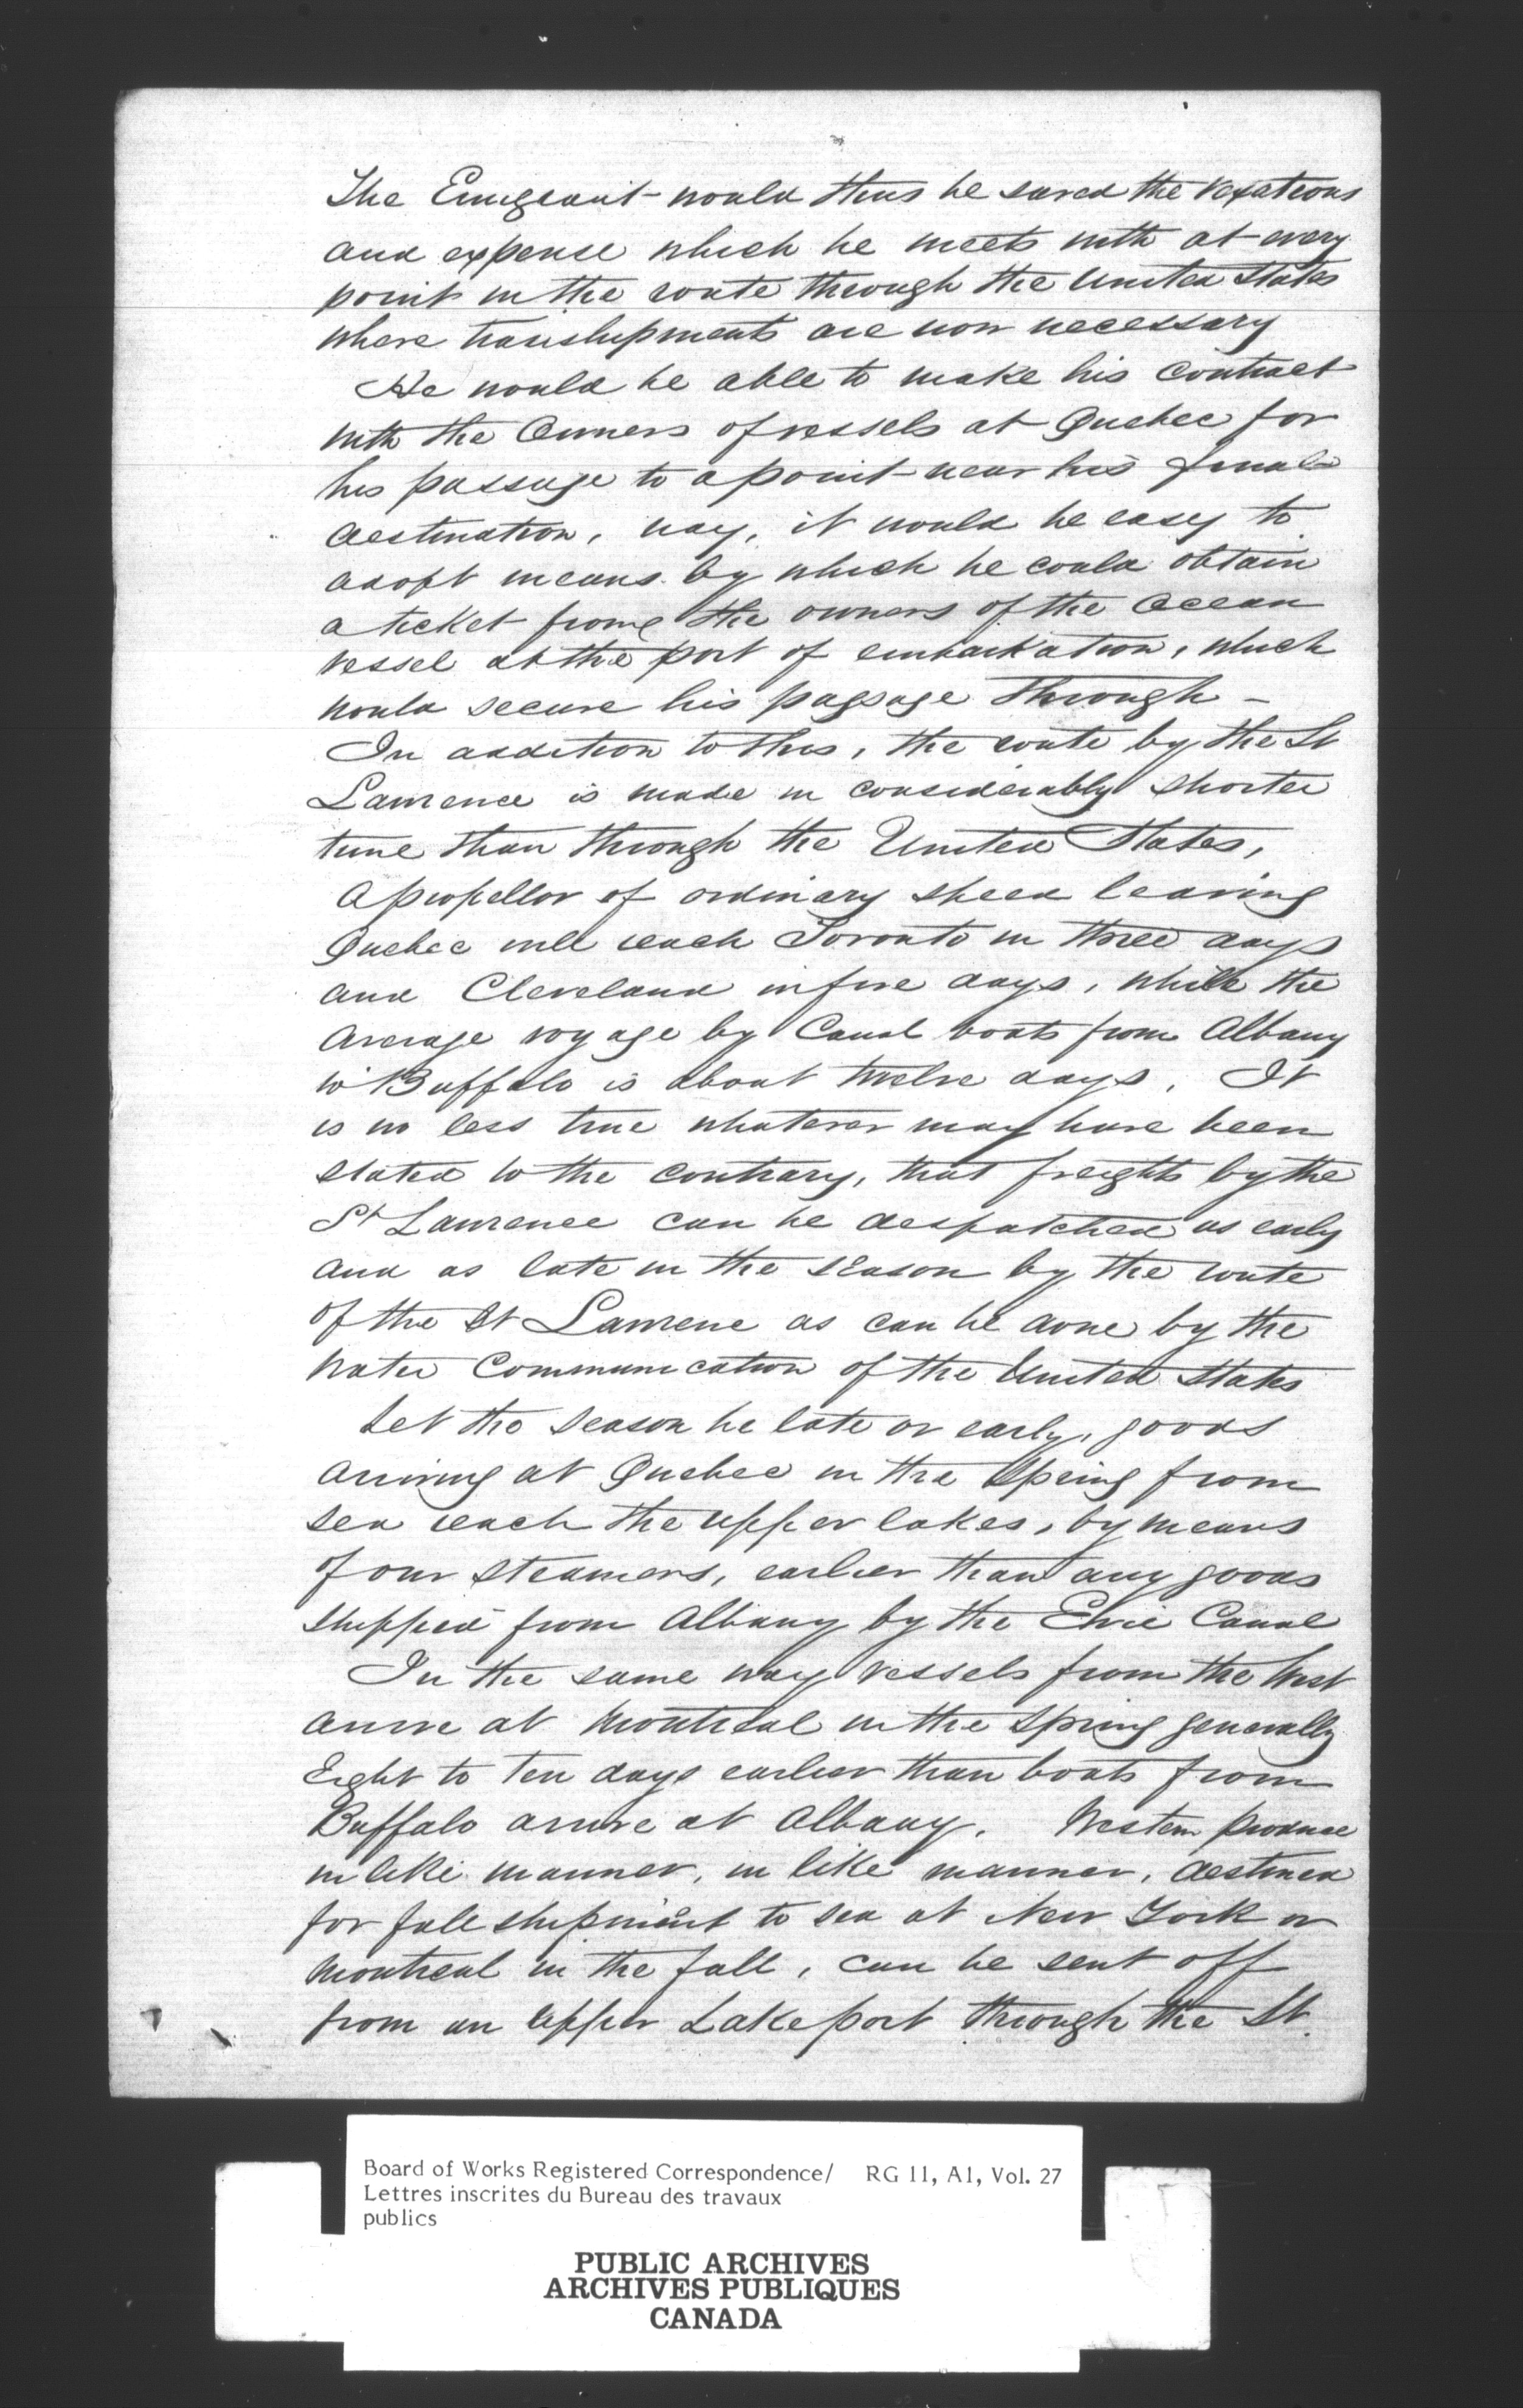 The Emigrant would thus be saved the vexations
and expense which he meets with at every
point in the route through the United States
where transhipments are now necessary
He would be able to make his contract
with the Owners of vessels at Quebec for
his passage to a point near his final
destination, nay, it would be easy to
adopt means by which he could obtain
a ticket from the owners of the Ocean
vessel at the port of embarkation, which
would secure his passage through -
In addition to this, the route by the St
Lawrence is made in considerably shorter
time than through the United States,
A propellor of ordinary speed leaving
Quebec will reach Toronto in three days
and Cleveland in five days, while the
average voyage by Canal boats from Albany
to Buffalo is about twelve days. It
is no less true whatever may have been
stated to the contrary, that freights by the
St Lawrence can be despatched as early
and as late in the season by the route
of the St Lawrene as can be done by the
water Communication of the United States
Let the Season be late or early, goods
arriving at Quebec in the Spring from
sea reach the upper lakes, by means
of our steamers, earlier than any goods
shipped from Albany by the Erie Canal
In the same way vessels from the West
arrive at Montreal in the Spring generally
Eight to Ten days earlier than boats from
Buffalo arrive at Albany. Western produce
in like manner, in like manner, destined
for full shipment to sea at New York or
Montreal in the fall, can be sent off
from an Upper Lake port through the St.
Board of Works Registered Correspondence/ RG 11, A1, Vol. 27
Lettres inscrites du Bureau des travaux
publics
PUBLIC ARCHIVES
ARCHIVES PUBLIQUES
CANADA